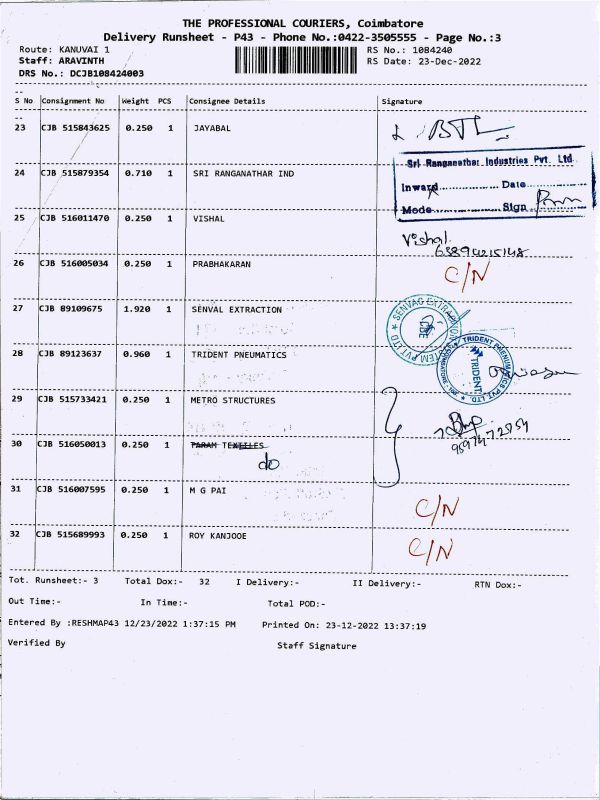 THE PROFESSIONAL COURIERS, Coimbatore
Delivery Runsheet - P43 - Phone No.:0422-3505555 - Page No.:3
Route: KANUVAI 1 RS No.: 1084240
Staff: ARAVINTH RS Date: 23-Dec-2022
DRS No.: DCJB108424003
S No Consignment No Weight PCS Consignee Details Signature
23 CJB 515843625 0.250 1 JAYABAL
Sri Ranganathar Industries Pvt. Ltd
24 CJB 515879354 0.710 1 SRI RANGANATHAR IND
Inward............... Date..............
Mode............... Sign
25 CJB 516011470 0.250 1 VISHAL
Vishal.
26 CJB 516005034 0.250 1 PRABHAKARAN C/N
27 CJB 89109675 1.920 1 SENVAL EXTRACTION
28 CJB 89123637 0.960 1 TRIDENT PNEUMATICS
TRIDENT
29 CJB 515733421 0.250 1 METRO STRUCTURES
30 CJB 516050013 0.250 1 PARAM TEXTILES
do
31 CJB 516007595 0.250 1 M G PAI C/N
32 CJB 515689993 0.250 1 ROY KANJOOE C/N
Tot. Runsheet:- 3 Total Dox:- 32 I Delivery:- II Delivery:- RTN Dox:-
Out Time:- In Time:- Total POD:-
Entered By :RESHMAP43 12/23/2022 1:37:15 PM Printed On: 23-12-2022 13:37:19
Verified By Staff Signature